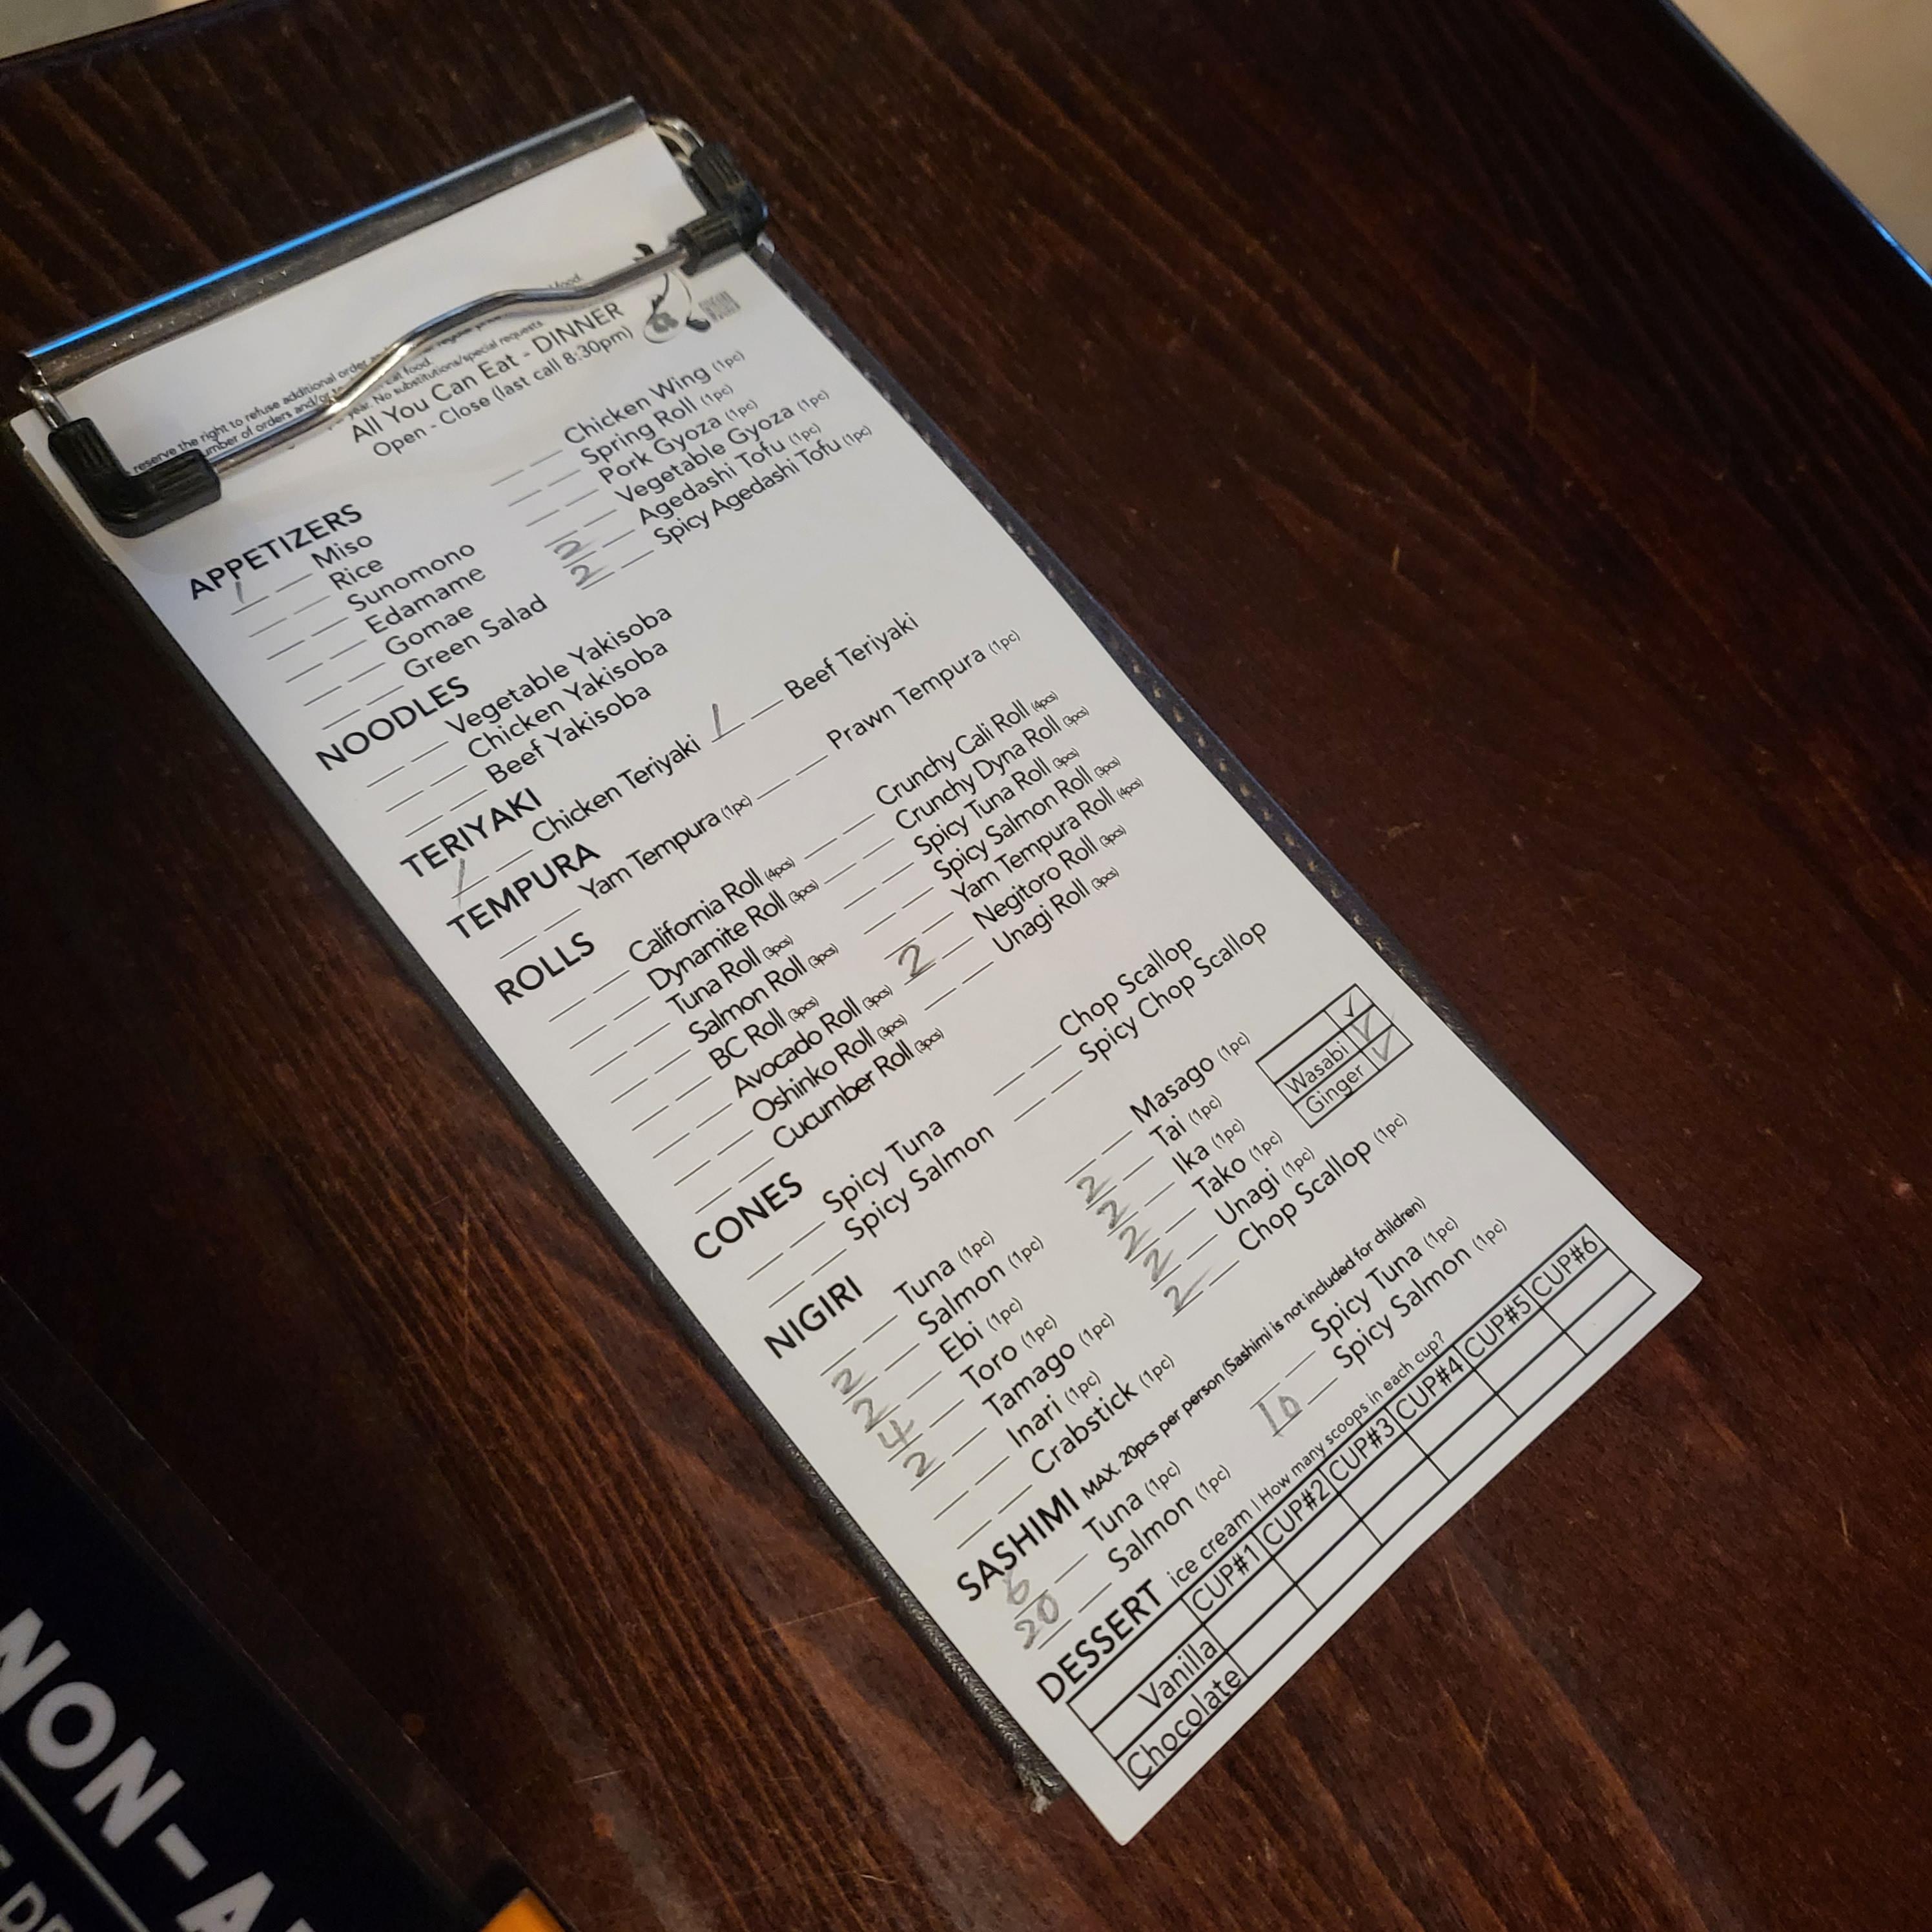 reserve the right to refuse additional order
number of orders and/or
eat food.
year. No substitutions/special requests
All You Can Eat - DINNER
Open - Close (last call 8:30pm)
APPETIZERS
1 Miso
Rice
Sunomono
Edamame
Gomae
Green Salad
Chicken Wing (1pc)
Spring Roll (1pc)
Pork Gyoza (1pc)
Vegetable Gyoza (1pc)
2 Agedashi Tofu (1pc)
2 Spicy Agedashi Tofu (1pc)
NOODLES
Vegetable Yakisoba
Chicken Yakisoba
Beef Yakisoba
TERIYAKI
1 Chicken Teriyaki 1 Beef Teriyaki
TEMPURA
Yam Tempura (1pc) Prawn Tempura (1pc)
ROLLS
California Roll (4pcs)
Dynamite Roll (3pcs)
Tuna Roll (3pcs)
Salmon Roll (3pcs)
BC Roll (3pcs)
Avocado Roll (3pcs)
Oshinko Roll (3pcs)
Cucumber Roll (3pcs)
Crunchy Cali Roll (4pcs)
Crunchy Dyna Roll (3pcs)
Spicy Tuna Roll (3pcs)
Spicy Salmon Roll (3pcs)
Yam Tempura Roll (4pcs)
2 Negitoro Roll (3pcs)
Unagi Roll (3pcs)
CONES
Spicy Tuna
Spicy Salmon
Chop Scallop
Spicy Chop Scallop
NIGIRI
Tuna (1pc)
2 Salmon (1pc)
2 Ebi (1pc)
4 Toro (1pc)
2 Tamago (1pc)
Inari (1pc)
Crabstick (1pc)
Masago (1pc)
2 Tai (1pc)
2 Ika (1pc)
2 Tako (1pc)
2 Unagi (1pc)
2 Chop Scallop (1pc)
✓
Wasabi ✓
Ginger ✓
SASHIMI MAX. 20pcs per person (Sashimi is not included for children)
6 Tuna (1pc)
20 Salmon (1pc)
Spicy Tuna (1pc)
10 Spicy Salmon (1pc)
DESSERT ice cream | How many scoops in each cup?
CUP#1 CUP#2 CUP#3 CUP#4 CUP#5 CUP#6
Vanilla
Chocolate
NON-A